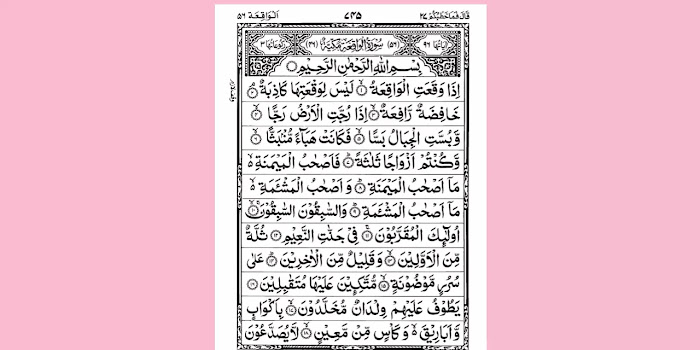 اَلْوَاقِعَة ٥٦ ٧٤٥ قَالَ فَمَا خَطْبُكُمْ ٢٧
اٰيَاتُهَا ٩٦ (٥٦) سُوْرَةُ الْوَاقِعَةِ مَكِّيَّةٌ (٤٦) رُكُوْعَاتُهَا ٣
بِسْمِ اللّٰهِ الرَّحْمٰنِ الرَّحِيْمِ
اِذَا وَقَعَتِ الْوَاقِعَةُ ۙ﴿۱﴾ لَيْسَ لِوَقْعَتِهَا كَاذِبَةٌ ۘ﴿۲﴾
خَافِضَةٌ رَّافِعَةٌ ۙ﴿۳﴾ اِذَا رُجَّتِ الْاَرْضُ رَجًّا ۙ﴿۴﴾
وَّ بُسَّتِ الْجِبَالُ بَسًّا ۙ﴿۵﴾ فَكَانَتْ هَبَآءً مُّنْۢبَثًّا ۙ﴿۶﴾
وَّ كُنْتُمْ اَزْوَاجًا ثَلٰثَةً ؕ﴿۷﴾ فَاَصْحٰبُ الْمَيْمَنَةِ ۙ۬
مَاۤ اَصْحٰبُ الْمَيْمَنَةِ ؕ﴿۸﴾ وَ اَصْحٰبُ الْمَشْـَٔمَةِ ۙ۬
مَاۤ اَصْحٰبُ الْمَشْـَٔمَةِ ؕ﴿۹﴾ وَ السّٰبِقُوْنَ السّٰبِقُوْنَ ۙ﴿۱۰﴾
اُولٰٓئِكَ الْمُقَرَّبُوْنَ ۚ﴿۱۱﴾ فِيْ جَنّٰتِ النَّعِيْمِ ﴿۱۲﴾ ثُلَّةٌ
مِّنَ الْاَوَّلِيْنَ ۙ﴿۱۳﴾ وَ قَلِيْلٌ مِّنَ الْاٰخِرِيْنَ ؕ﴿۱۴﴾ عَلٰى
سُرُرٍ مَّوْضُوْنَةٍ ۙ﴿۱۵﴾ مُّتَّكِـِٕيْنَ عَلَيْهَا مُتَقٰبِلِيْنَ ﴿۱۶﴾
يَطُوْفُ عَلَيْهِمْ وِلْدَانٌ مُّخَلَّدُوْنَ ۙ﴿۱۷﴾ بِاَكْوَابٍ
وَّ اَبَارِيْقَ ۙ۬ وَ كَاْسٍ مِّنْ مَّعِيْنٍ ۙ﴿۱۸﴾ لَّا يُصَدَّعُوْنَ